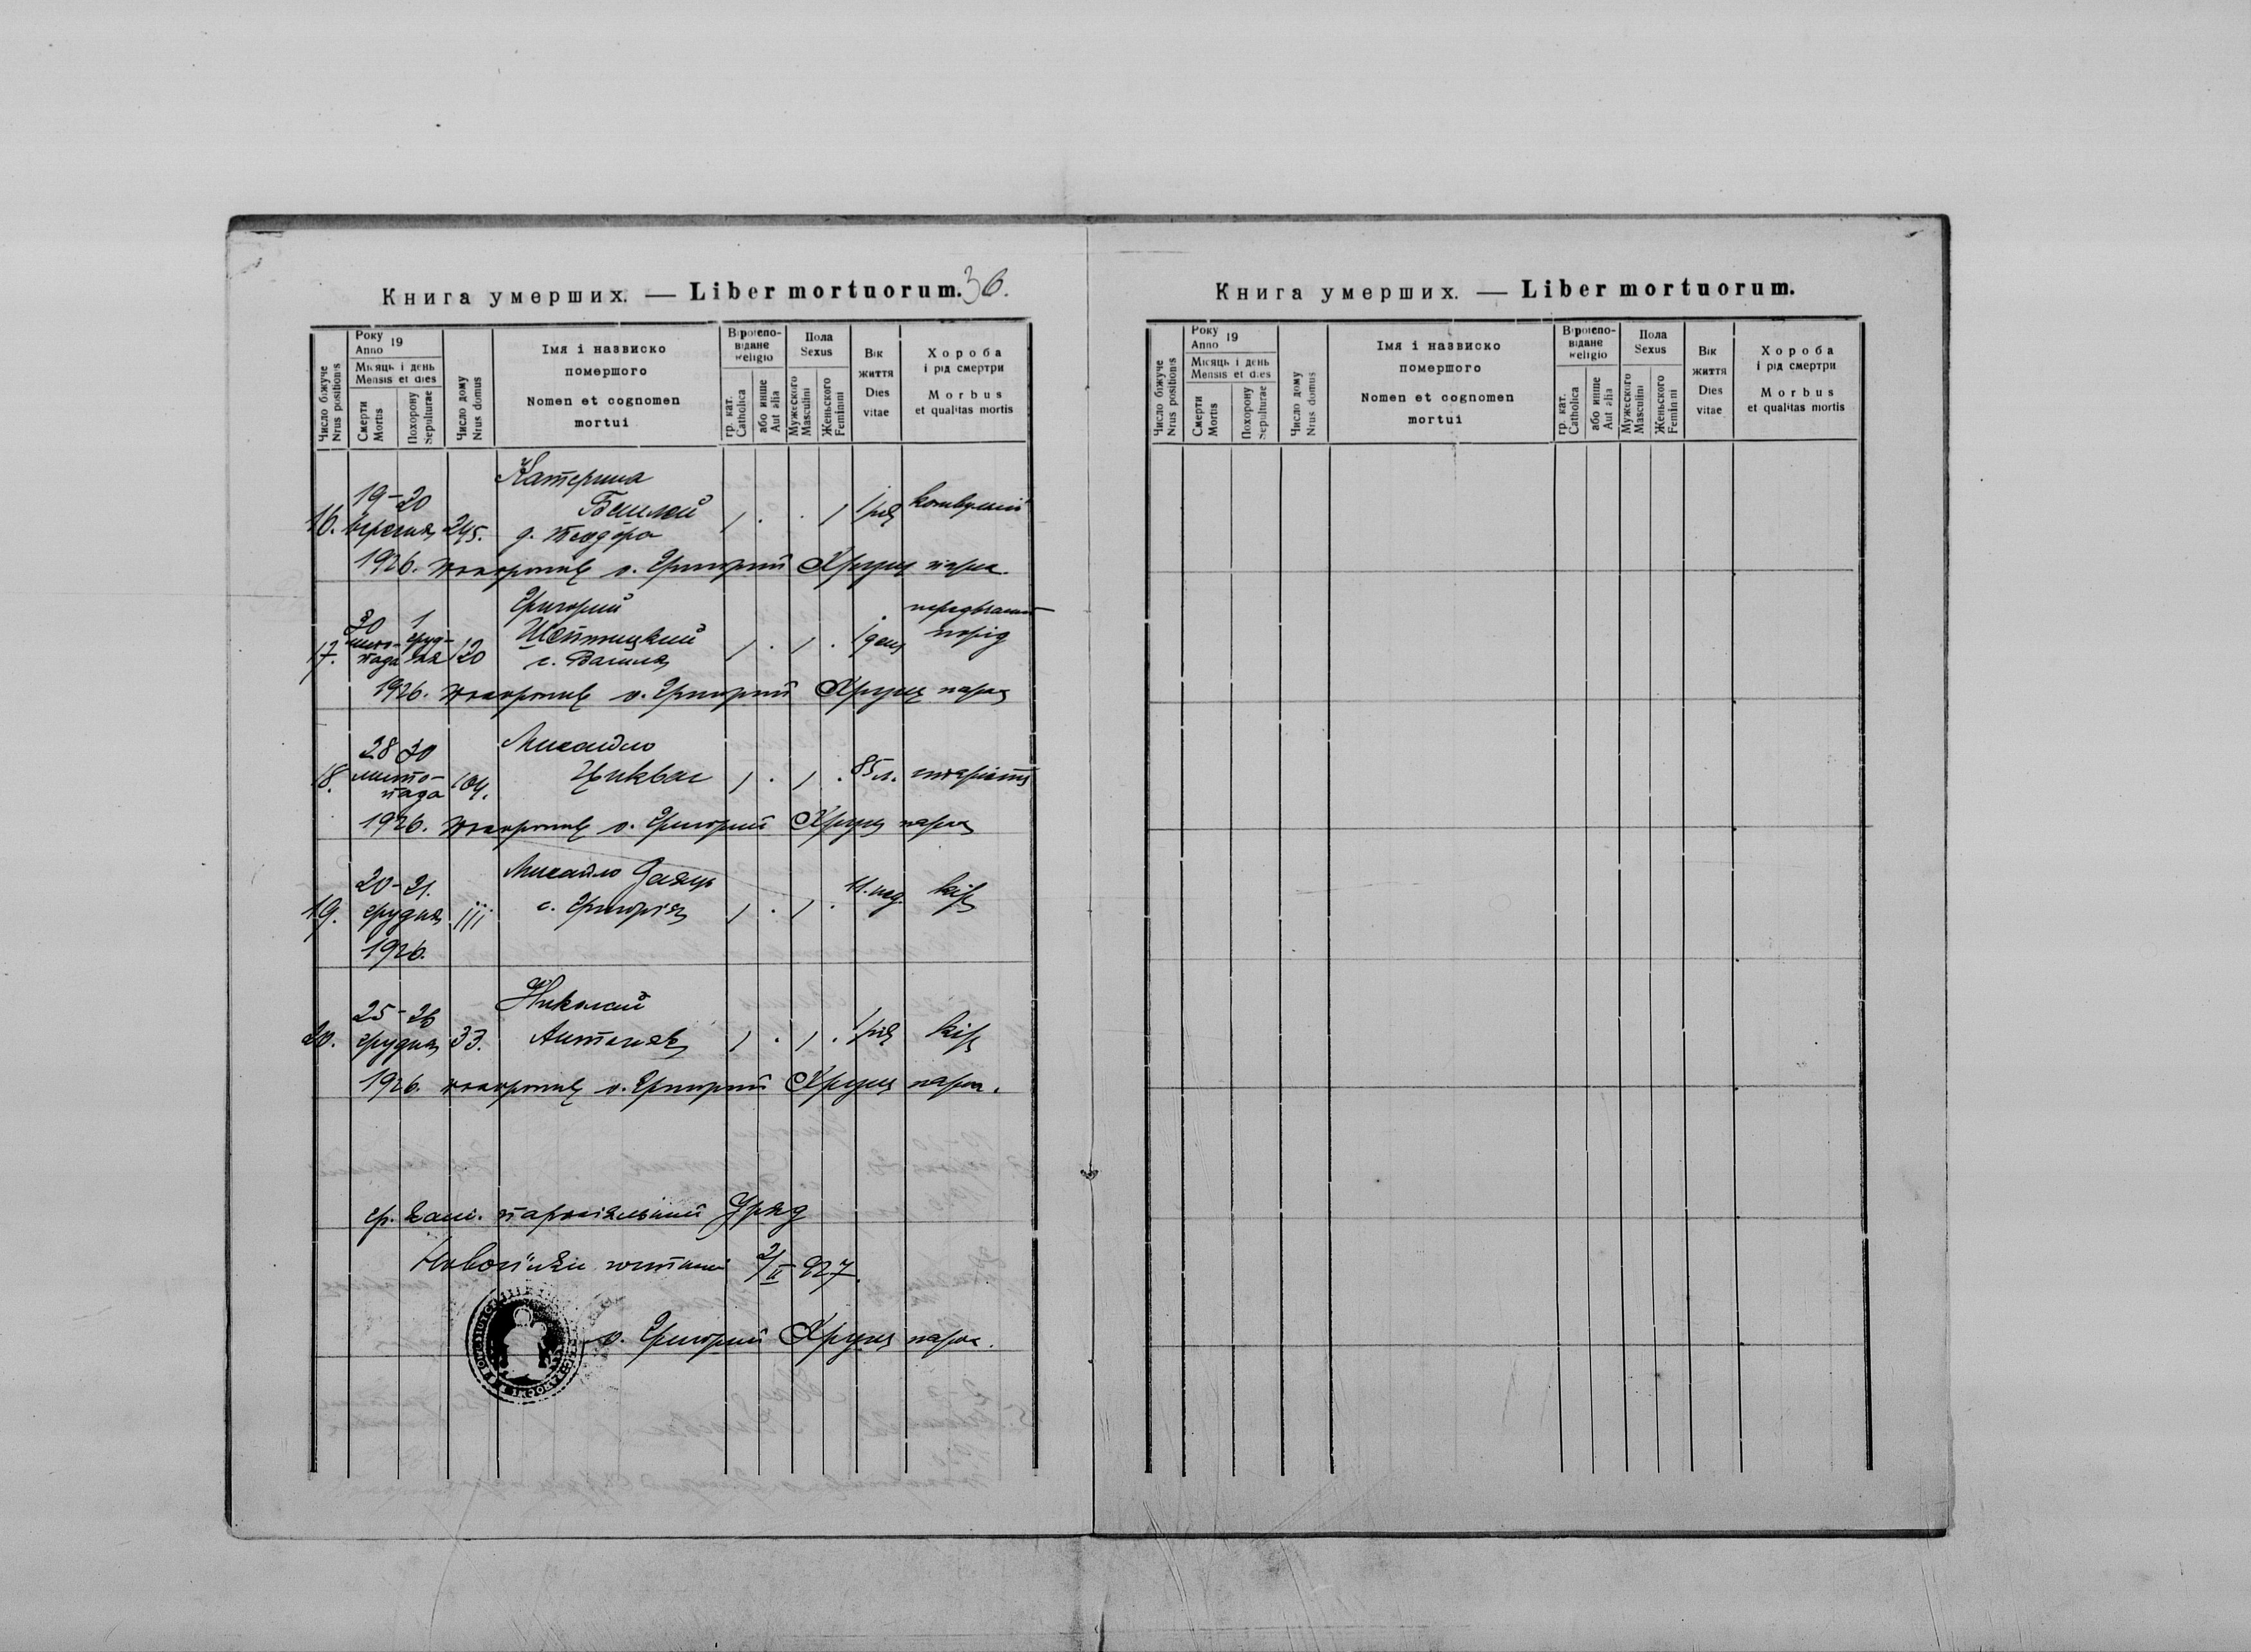 Книга умерших. — Liber mortuorum. 36.
Число біжуче
Nrus positionis
Року
Anno 19
Місяць і день
Mensis et dies
Смерти
Mortis
Похорону
Sepulturae
Число дому
Nrus domus
Імя і назвиско
помершого
Nomen et cognomen
mortui
Віроіспо-
відане
Religio
гр. кат.
Catholica
або инше
Aut alia
Пола
Sexus
Мужеского
Masculini
Женьского
Feminini
Вік
життя
Dies
vitae
Хороба
і рід смертри
Morbus
et qualitas mortis
16. 19-20 вересня 245. Катерина
д. Теодора
1 рік
1926. похоронив о. Григорий Хрущ парох.
17. 30 листо-
пада 1 груд-
ня 120 Григорий
Шептицкий
с. Василя
1 день
порід
1926. похоронив о. Григорий Хрущ парох
18. 28 30 листо-
пада 104. Михайло
Циквас
85 л. старість
1926. похоронив о. Григорий Хрущ парох
19. 20-21. грудня 111 Михайло Заяць
с. Григорія
11. нед. кір
1926.
20. 25-26 грудня 33. Николай
Антоняк
1 рік кір
1926. похоронив о. Григорий Хрущ парох.
гр. кат. парохіяльний Уряд
2/II 927.
о. Григорий Хрущ парох.
Книга умерших. — Liber mortuorum.
Число біжуче
Nrus positionis
Року
Anno 19
Місяць і день
Mensis et dies
Смерти
Mortis
Похорону
Sepulturae
Число дому
Nrus domus
Імя і назвиско
помершого
Nomen et cognomen
mortui
Віроіспо-
відане
Religio
гр. кат.
Catholica
або инше
Aut alia
Пола
Sexus
Мужеского
Masculini
Женьского
Feminini
Вік
життя
Dies
vitae
Хороба
і рід смертри
Morbus
et qualitas mortis